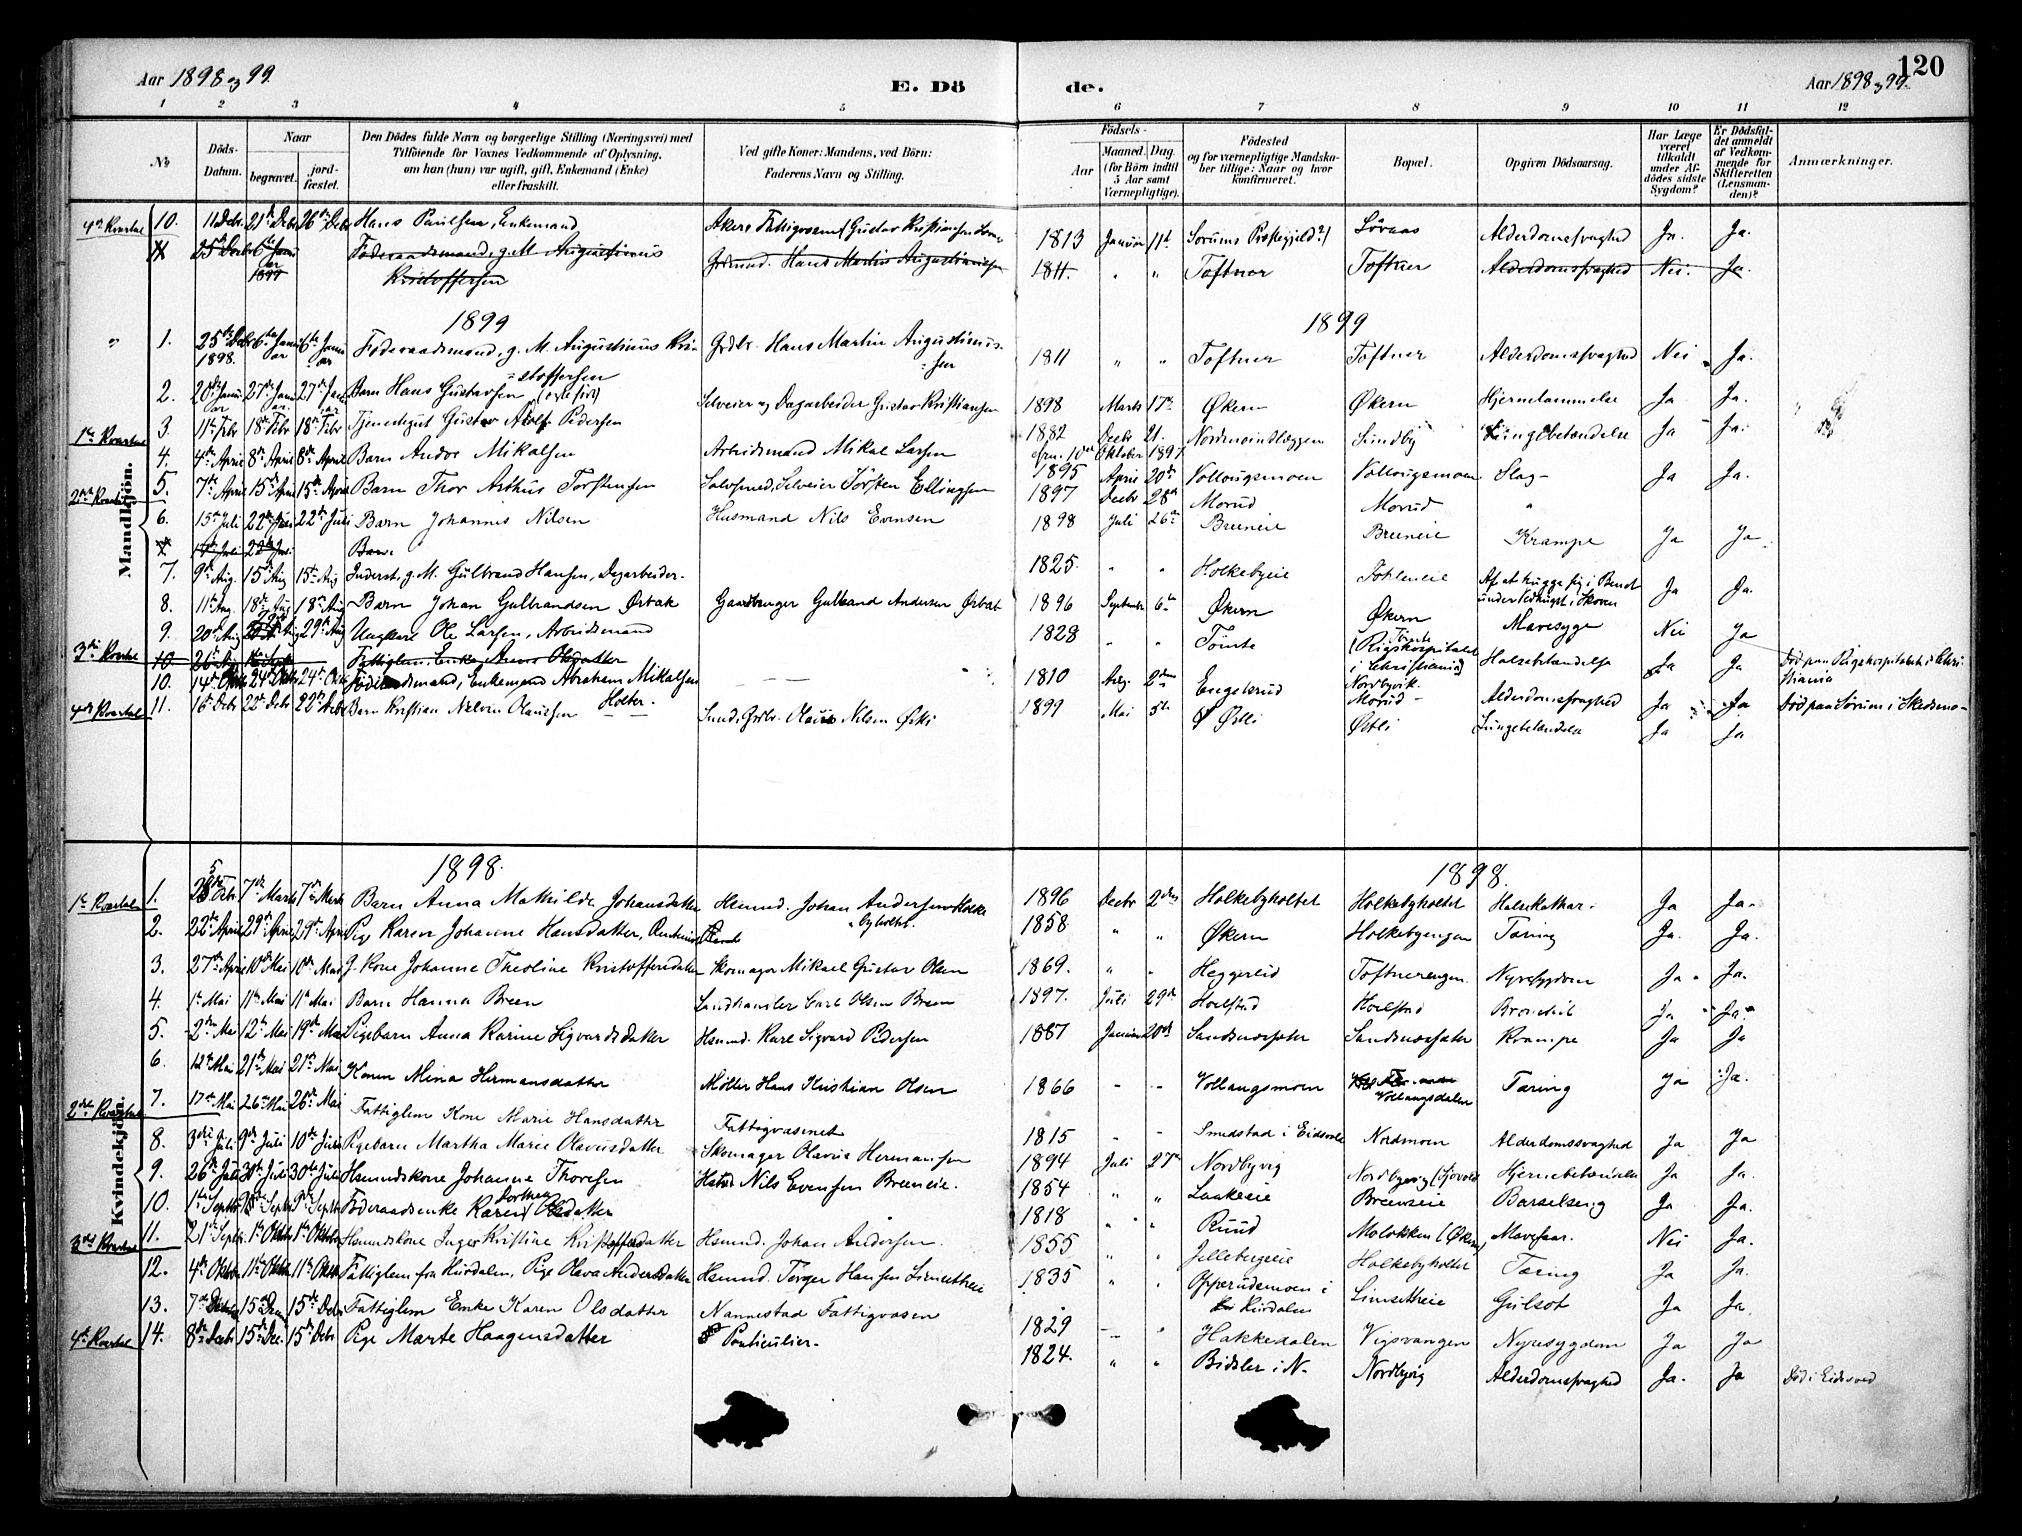 120
Aar 1898 og 99.
E. Dö
de.
Aar 1898 og 99.
1 2 3 4 5 6 7 8 9 10 11 12
No
Döds-Datum.
Naar
begravet.
jord-fæstet.
Den Dödes fulde Navn og borgerlige Stilling (Næringsvei) med
Tilföiende for Voxnes Vedkommende af Oplysning,
om han (hun) var ugift, gift, Enkemand (Enke)
eller fraskilt.
Ved gifte Koner: Mandens, ved Börn:
Faderens Navn og Stilling.
Födsels-
Aar
Maaned. Dag.
(for Börn indtil
5 Aar samt
Værnepligtige).
Födested
og for værnepligtige Mandska-
ber tillige: Naar og hvor
konfirmeret.
Bopæl.
Opgiven Dödsaarsag.
Har Læge
været
tilkaldt
under Af-
dödes sidste
Sygdom?
Er Dödsfal-
det anmeldt
af Vedkom-
mende for
Skifteretten
(Lensman-
den)?
Anmærkninger.
Mandkjön.
4de Kvartal 10. 11 Debr 21de Debr 26de Debr Hans Paulsen, Enkemand Akers Fattigvæsen (Gustav Kristiansen 1813 Januar 11te Sørums Præstegjeld?) Løvaas Alderdomssvaghed Ja. Ja.
11 25de Debr 6te Januar 1899 Føderaadsmand, g. M. Augustinus Kristoffersen Grdmd. Hans Martin Augustinussen 1811. " " Toftner Toftner Alderdomssvaghed Nei. Ja.
1899 1899
" 1. 25de Debr 1898. 6te Januar 6te Januar Føderaadsmand, g. M. Augustinus Kristoffersen Grdbr. Hans Martin Augustinussen 1811 " " Toftner Toftner Alderdomssvaghed Nei Ja.
2. 20de Januar 27de Januar 27de Januar Barn Hans Gustavsen Selveier og Dagarbeider Gustav Kristiansen 1898 Marts 17de Økern Økern Hjernelammelse Ja Ja.
1ste Kvartal 3. 11te Febr 18de Febr 18de Febr Tjenestegut Gustav Adolf Pedersen 1882 Decbr 21. Nordmoindlæggen Sundby Lungebetændelse Ja Ja.
4. 4de April 8de April 8de April Barn Andor Mikalsen Arbeidsmand Mikal Larsen 1895 April 20de Vollaugsmoen Vollaugsmoen Slag Ja Ja.
2det Kvartal 5. 7de April 15de April 15de April Barn Thor Arthus Torstensen Selveier Torsten Ellingsen 1897 Decbr 28de Morud Morud "
6. 15de Juli 22de Juli 22de Juli Barn Johannes Nilsen Husmand Nils Evensen 1898 Juli 26de Breeneie Breeneie Krampe Ja Ja
7. 17de Juli 22de Juli Barn
7. 9de Aug. 15de Aug 15de Aug Inderst, g. M. Gulbrand Hansen, Dagarbeider. 1825. " " Holkebyeie Af at hugge sig i Benet under Vedhugst i Skoven Ja Ja.
8. 11te Aug. 18de Aug 18de Aug Barn Johan Gulbrandsen Ørbæk Gaardbruger Gulbrand Andersen 1896 September 6te Økern Økern Mavesyge Nei Ja
9. 20de Aug 29de Aug Ungkarl Ole Larsen, Arbeidsmand 1828 " " Tomte Tomte (Rigshospitalet i Christiania) Halsbetændelse Ja Ja Død paa Rigshospitalet i Christiania
3die Kvartal 10. 26de Aug Fattiglem, Enke Anne Olsdatter
10. 14de Oktbr 24de Oktbr 24de Oktbr Føderaadsmand, Enkemand Abraham Mikalsen Holter. — — 1810 Aug. 2den Engelsrud Nordbyvik. Morud Alderdomssvaghed Ja Ja Død paa Sørum i Skedsmo
4de Kvartal 11. 16de Debr 22de Debr 22de Debr Barn Kristian Nelvin Olaussen Grdbr. Olaus Nilsen Østli 1899 Mai 5te Østli Østli Lungebetændelse Ja Ja
Kvindekjön.
1898. 1898.
1ste Kvartal 1. 7de Marts 7de Marts Barn Anna Mathilde Johansdatter Hsmnd. Johan Andersen Holkebyholtet. 1896 Decbr 2den Holkebyholtet Holkebyholtet Halskathar. Ja Ja.
2. 22de April 29de April 29de April Pige Karen Johanne Hansdatter, 1858. " " Økern Holkebyengen Tæring Ja. Ja.
3. 27de April 10de Mai 10de Mai G. Kone Johanne Theoline Kristoffersdatter Skomager Mikael Gustav Olsen 1869. " " Heggereid Toftnerengen Nyresygdom Ja Ja.
4. 1ste Mai 11te Mai 11te Mai Barn Hanna Breen Landhandler Carl Olsen Breen 1897. Juli 29de Hoelstad Hoelstad Bronchit Ja Ja
5. 2den Mai 12te Mai 19de Mai Pigebarn Anna Karine Sigvardsdatter Hsmnd. Karl Sigvard Pedersen 1887 Januar 20de Sandsnorsæter Sandsnorsæter Krampe Ja Ja
6. 12te Mai 21de Mai 21de Mai Konen Mina Hermansdatter Møller Hans Kristian Olsen 1866 " " Vollaugsmoen Vollaugsdalen Tæring Ja Ja.
2det Kvartal 7. 17de Mai 26de Mai 26de Mai Fattiglem Kone Marie Hansdatter Fattigvæsenet 1815 " " Smedstad i Eidsvold Nordmoen Alderdomssvaghed Ja Ja
8. 3die Juli 9de Juli 10de Juli Pigebarn Martha Marie Olavusdatter Skomager Olavus Hermansen 1894 Juli 27de Nordbyvig Nordbyvig Hjernebetændelse Ja Ja.
9. 26de Juli 30de Juli 30de Juli Hsmndskone Johanne Thoresen Hsmd Nils Evensen Breeneie. 1854 " " Laakeeie Breeneie Barselseng Ja Ja.
10. 1ste Septbr 9de Septbr 9de Septbr Føderaadsenke Karen Dorthea Olsdatter 1818 " " Ruud Molokken (Økern) Mavesaar. Nei Ja.
3die Kvartal 11. 21de Septbr 1ste Oktbr 1ste Oktbr Hsmndskone Inger Kristine Kristoffersdatter Hsmnd. Johan Andersen. 1855 " " Jellebergeie Holkebyholtet Tæring Ja Ja.
12. 4de Oktbr 11te Oktbr 11te Oktbr Fattiglem fra Hurdalen, Pige Olava Andersdatter Hsmnd. Torger Hansen Limsethreie 1835 " " Opperudsmoen i Hurdalen Limsethreie Gulsot Ja Ja.
13. 15de Debr 15de Debr Fattiglem Enke Karen Olsdatter Nannestad Fattigvæsen 1829 " " Hakkedalen Vigsvangen Nyresygdom Ja Ja
4de Kvartal 14. 8de Debr 15de Debr 15de Debr Pige Marte Haagensdatter Particulier. 1824. " " Bidsler i N. Nordbyvig Alderdomssvaghed Ja. Ja Død i Eidsvold